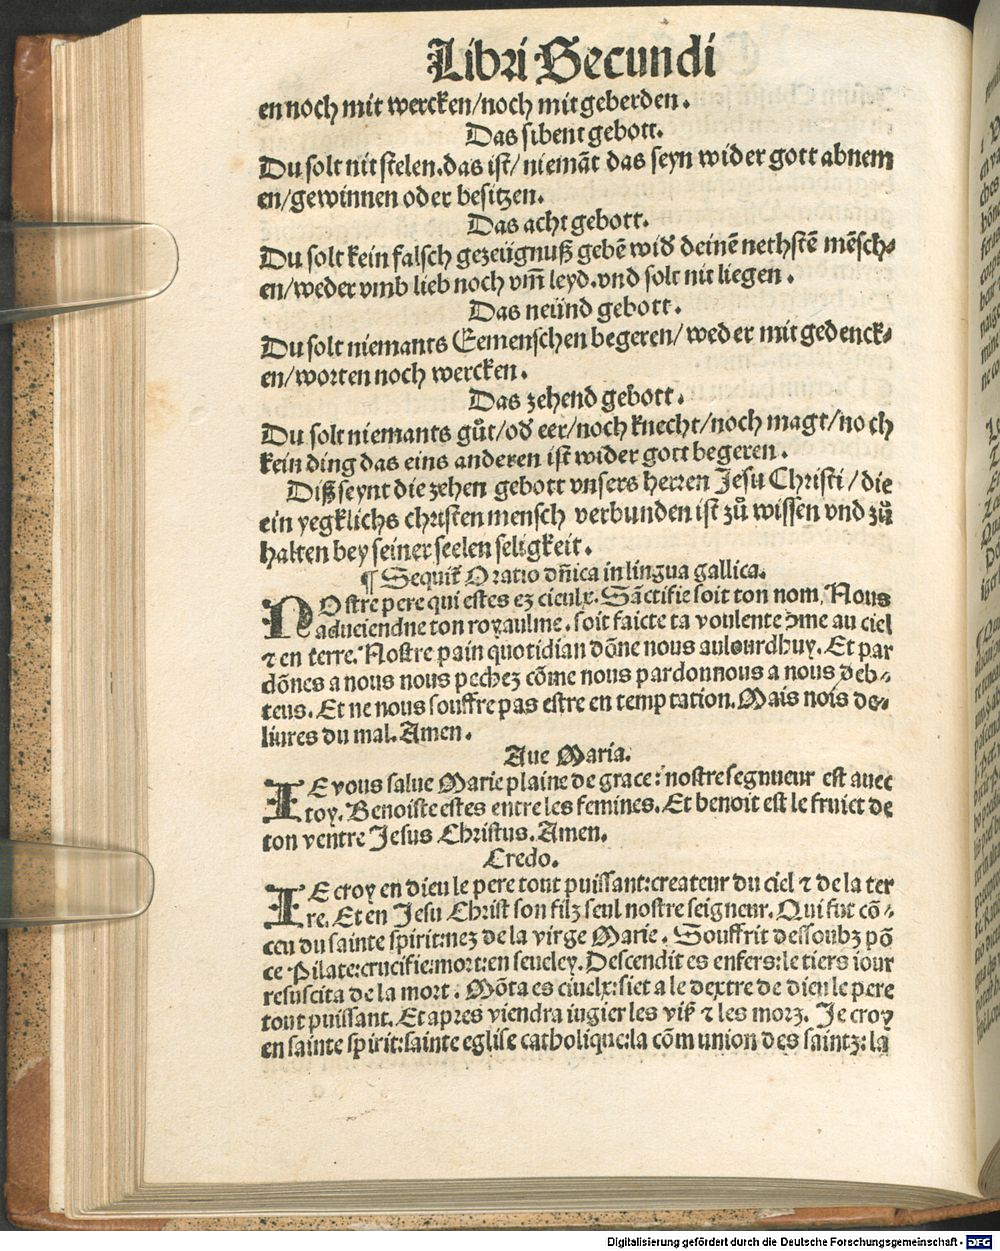 Libri Secundi
en noch mit wercken/noch mit geberden.
Das sibent gebott.
Du solt nit stelen.das ist/niemāt das seyn wider gott abnem
en/gewinnen oder besitzen.
Das acht gebott.
Du solt kein falsch gezeügnuß gebē wid̕ deinē nethstē mēsch⸗
en/weder vmb lieb noch vm̄ leyd.vnd solt nit liegen.
Das neünd gebott.
Du solt niemants Eemenschen begeren/weder mit gedenck⸗
en/worten noch wercken.
Das zehend gebott.
Du solt niemants gůt/od̕ eer/noch knecht/noch magt/noch
kein ding das eins anderen ist wider gott begeren.
Diß seynt die zehen gebott vnsers herren Jesu Christi/die
ein yegklichs christen mensch verbunden ist zů wissen vnd zů
halten bey seiner seelen seligkeit.
¶ Sequit̃ Oratio dn̄ica in lingua gallica.
NOstre pere qui estes ez cieulx. Sāctifie soit ton nom, Nous
aduciendne ton royaulme. soit faicte ta voulente ꝯme au ciel
⁊ en terre. Nostre pain quotidian dōne nous aulourdhuy. Et par
dōnes a nous nous pechez cōme nous pardonnous a nous deb⸗
teus. Et ne nous souffre pas estre en temptation. Mais nois de⸗
liures du mal. Amen.
Aue Maria.
IE vous salue Marie plaine de grace: nostre segnueur est auec
toy. Benoiste estes entre les femines. Et benoit est le fruict de
ton ventre Jesus Christus. Amen.
Credo.
IE croy en dieu le pere tout puissant:createur du ciel ⁊ de la ter
re. Et en Jesu Christ son filz seul nostre seigneur. Qui fut cō⸗
ceu du sainte spirit:nez de la virge Marie. Souffrit dessoubz pō
ce Pilate:crucifie:mort:en seueley. Descendit es enfers:le tiers iour
resuscita de la mort. Mōta es ciuelx:siet a le dextre de dieu le pere
tout puissant. Et apres viendra iugier les vif ⁊ les morz. Je croy
en sainte spirit:sainte eglise catholique:la cōm union des saintz: la
Digitalisierung gefördert durch die Deutsche Forschungsgemeinschaft - DFG